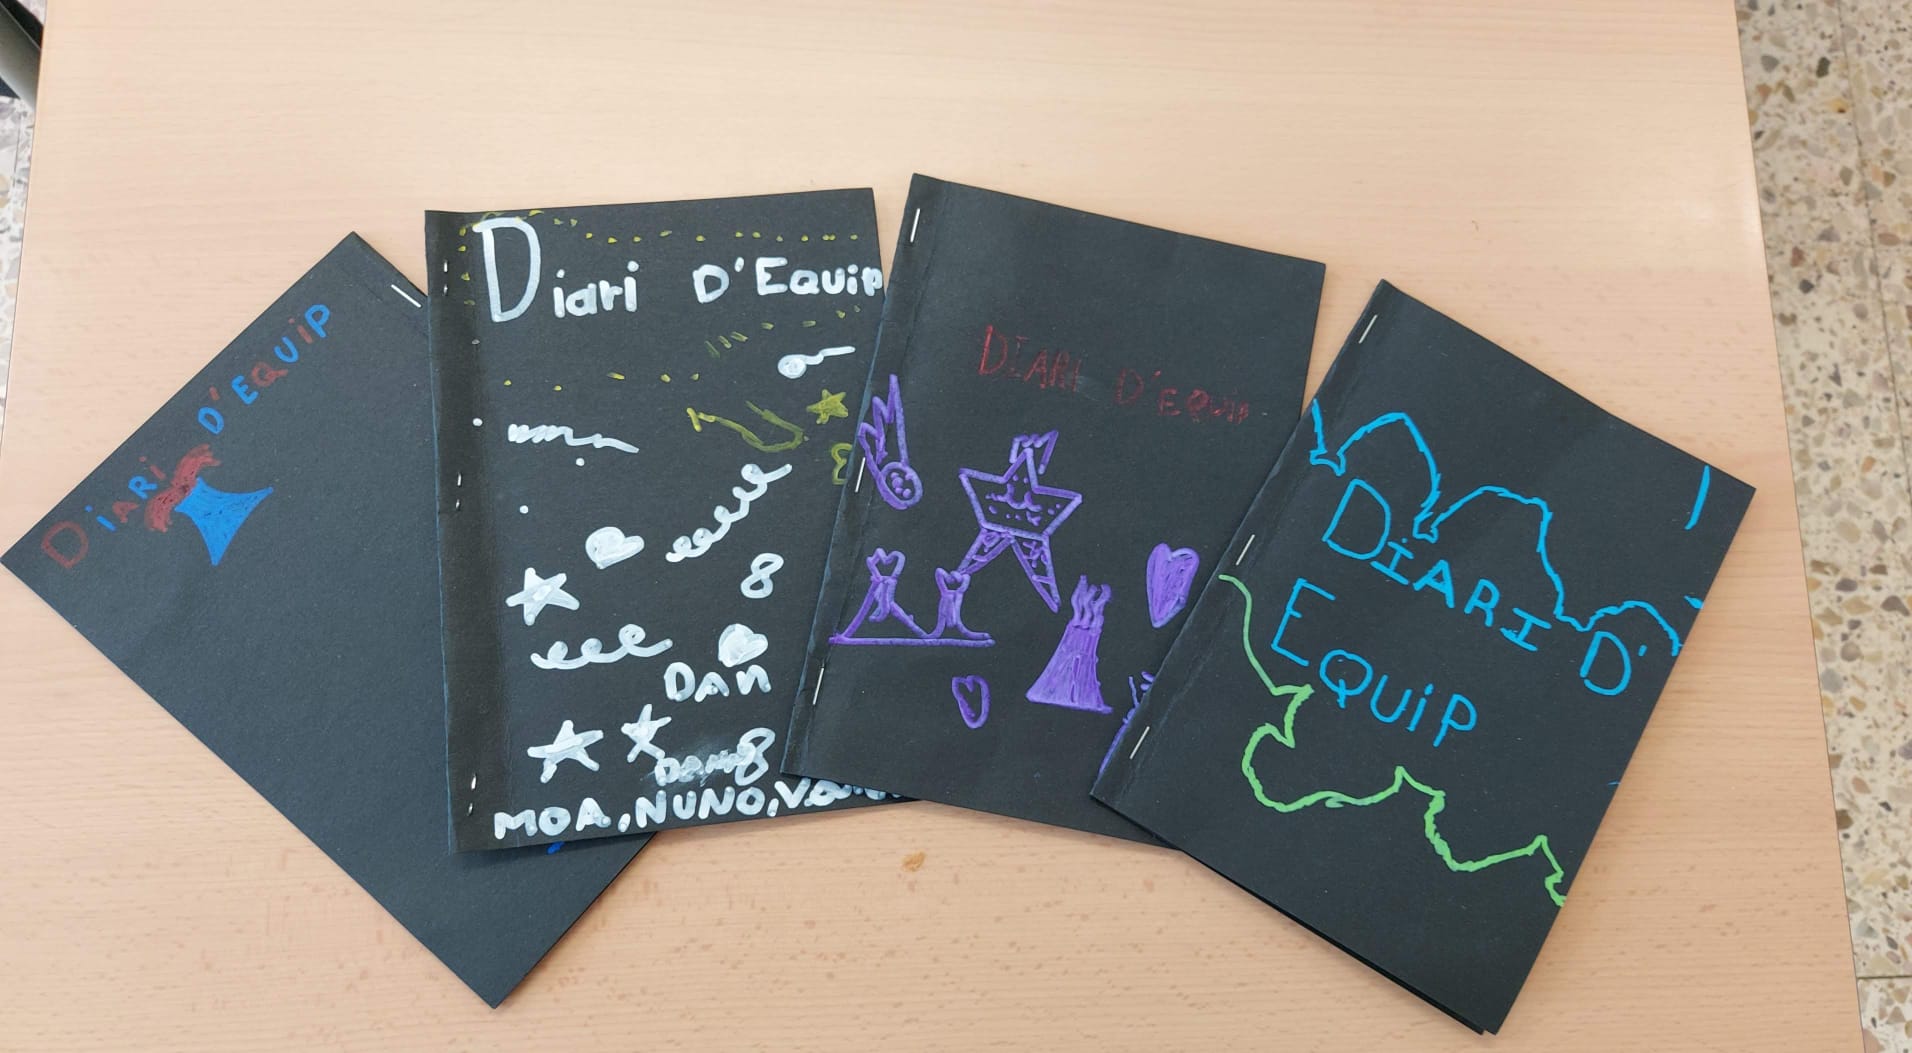 DiARi D'EQUiP
Diari D'EQuip
8
DAN
8
MOA, NUNO,
DIARI D'EQUIP
DiARI D'
EQUiP